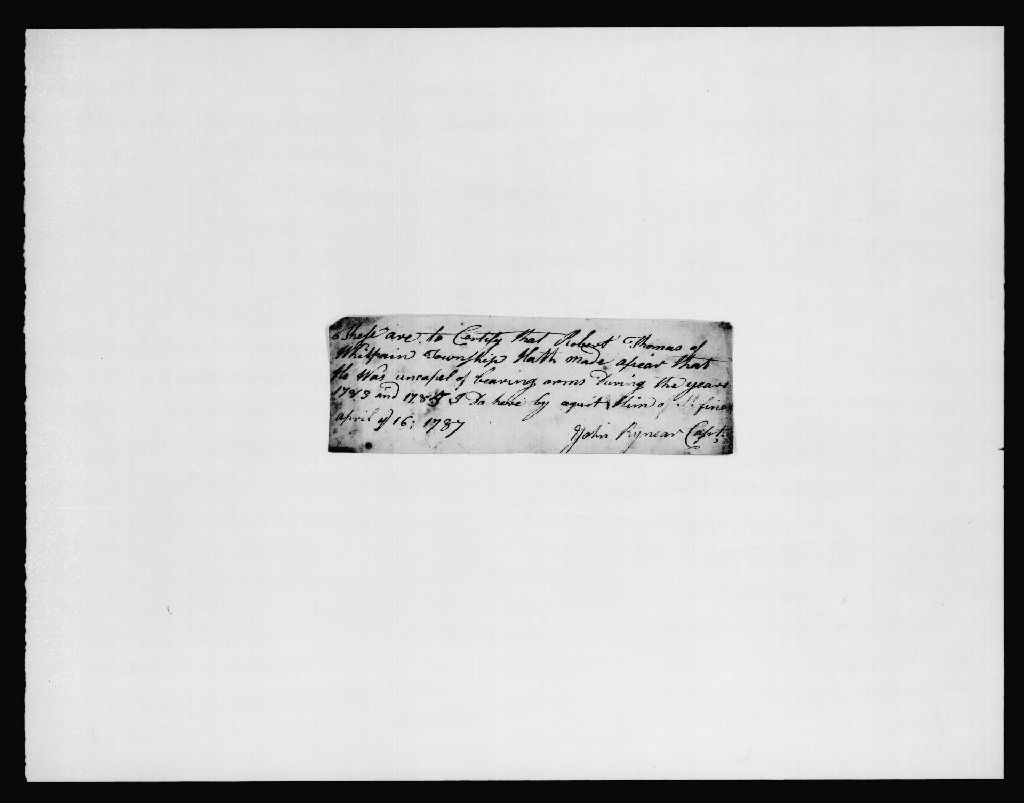 These are to Certify that Robert Thomas of
Whitpain Township Hath made apear that
He Was uncapel of bearing arms During the years
1783 and 1785 I Do here by aquit Him of fines
april ye 16: 1787
John Rynear Capt.